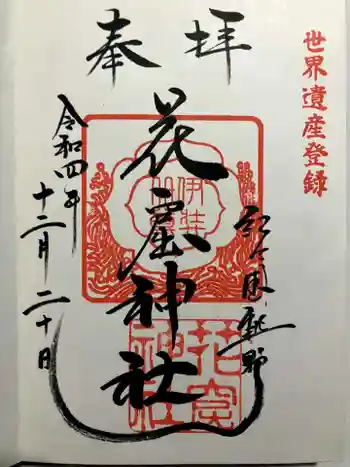 世界遺産登録
奉拝
紀伊国熊野
花窟神社
令和四年
十二月二十日
花窟
神社